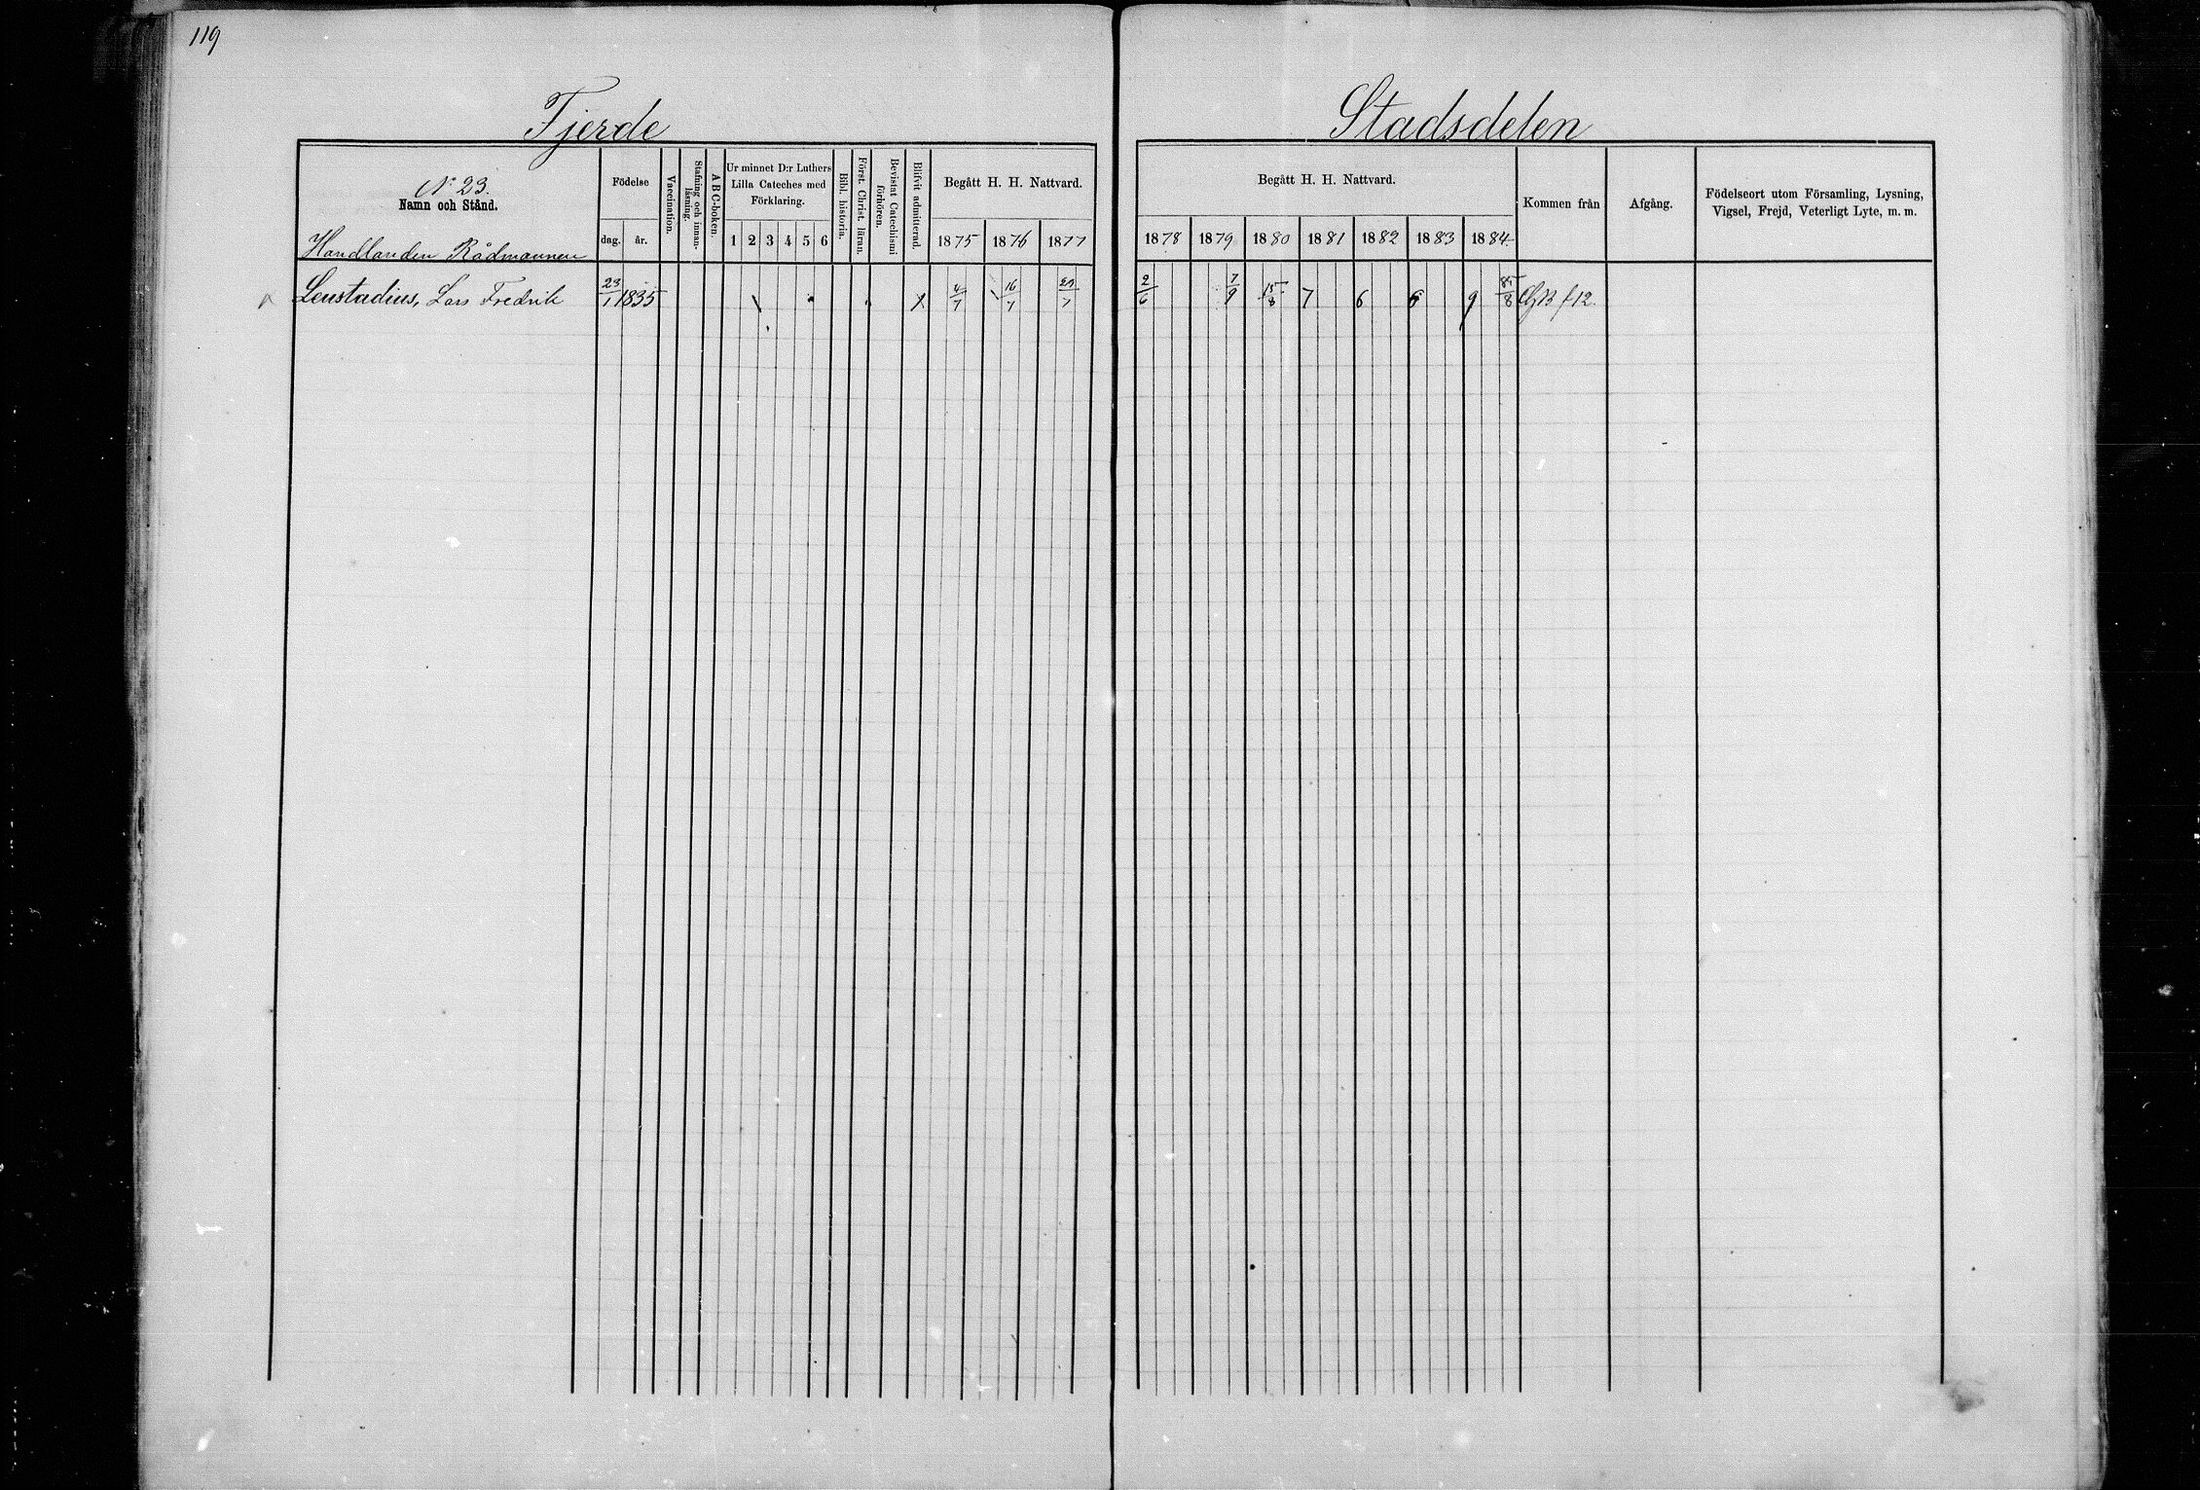 119
Fjerde Stadsdelen
N:o 23.
Namn och Stånd.
Födelse
dag. år.
Vaccination.
Stafning och innan-läsning.
A B C-boken.
Ur minnet D:r Luthers
Lilla Cateches med
Förklaring.
1 2 3 4 5 6
Bibl. historia.
Först. Christ. läran.
Bevistat Catechismi förhören.
Blifvit admitterad.
Begått H. H. Nattvard.
1875 1876 1877
Begått H. H. Nattvard.
1878 1879 1880 1881 1882 1883 1884
Kommen från
Afgång.
Födelseort utom Församling, Lysning,
Vigsel, Frejd, Veterligt Lyte, m. m.
Handlanden Rådmannen
Leustadius, Lars Fredrik 23/1 1835 4/7 16/7 29/7 2/6 7/9 15/8 7 6 6 9 f 12.